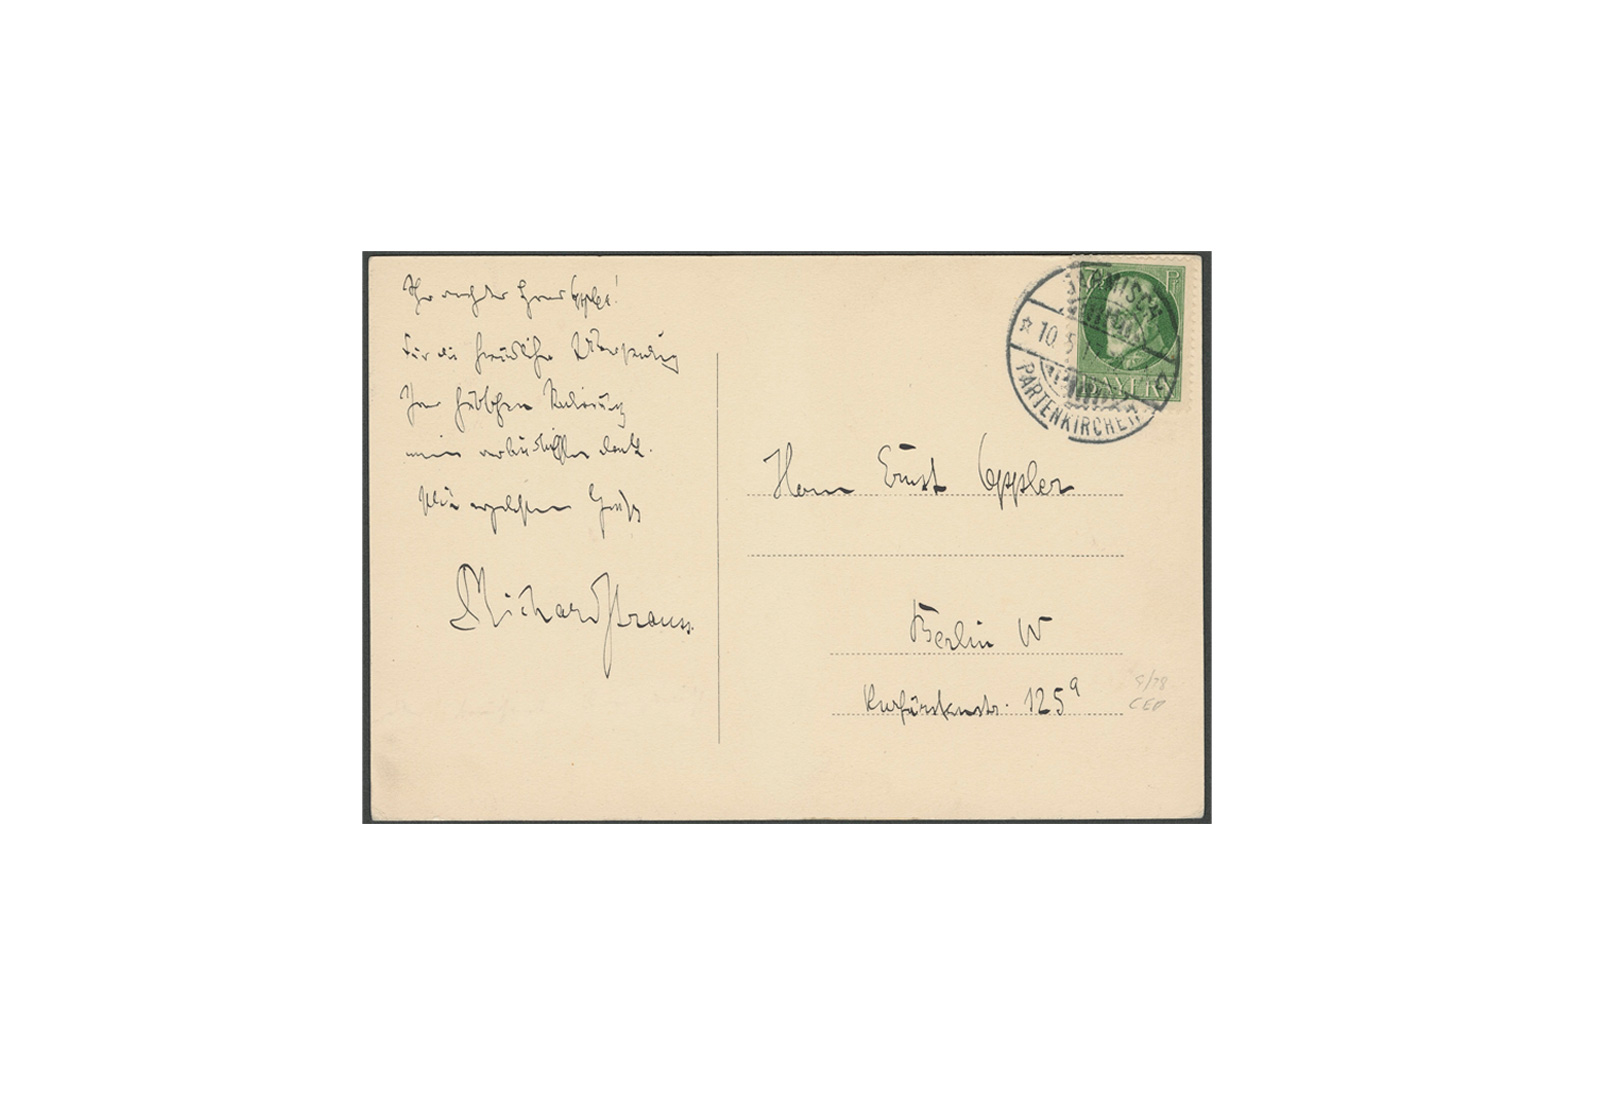 Sehr geehrter Herr Oppler!
Für die freundliche Übersendung
Ihrer hübschen Radierung
meinen verbindlichsten Dank.
Mit ergebensten Grüßen
Richard Strauss.
GARMISCH
10. 5
PARTENKIRCHEN
2
Pf
BAYERN
Herrn Ernst Oppler
Berlin W
Kurfürstenstr. 125a